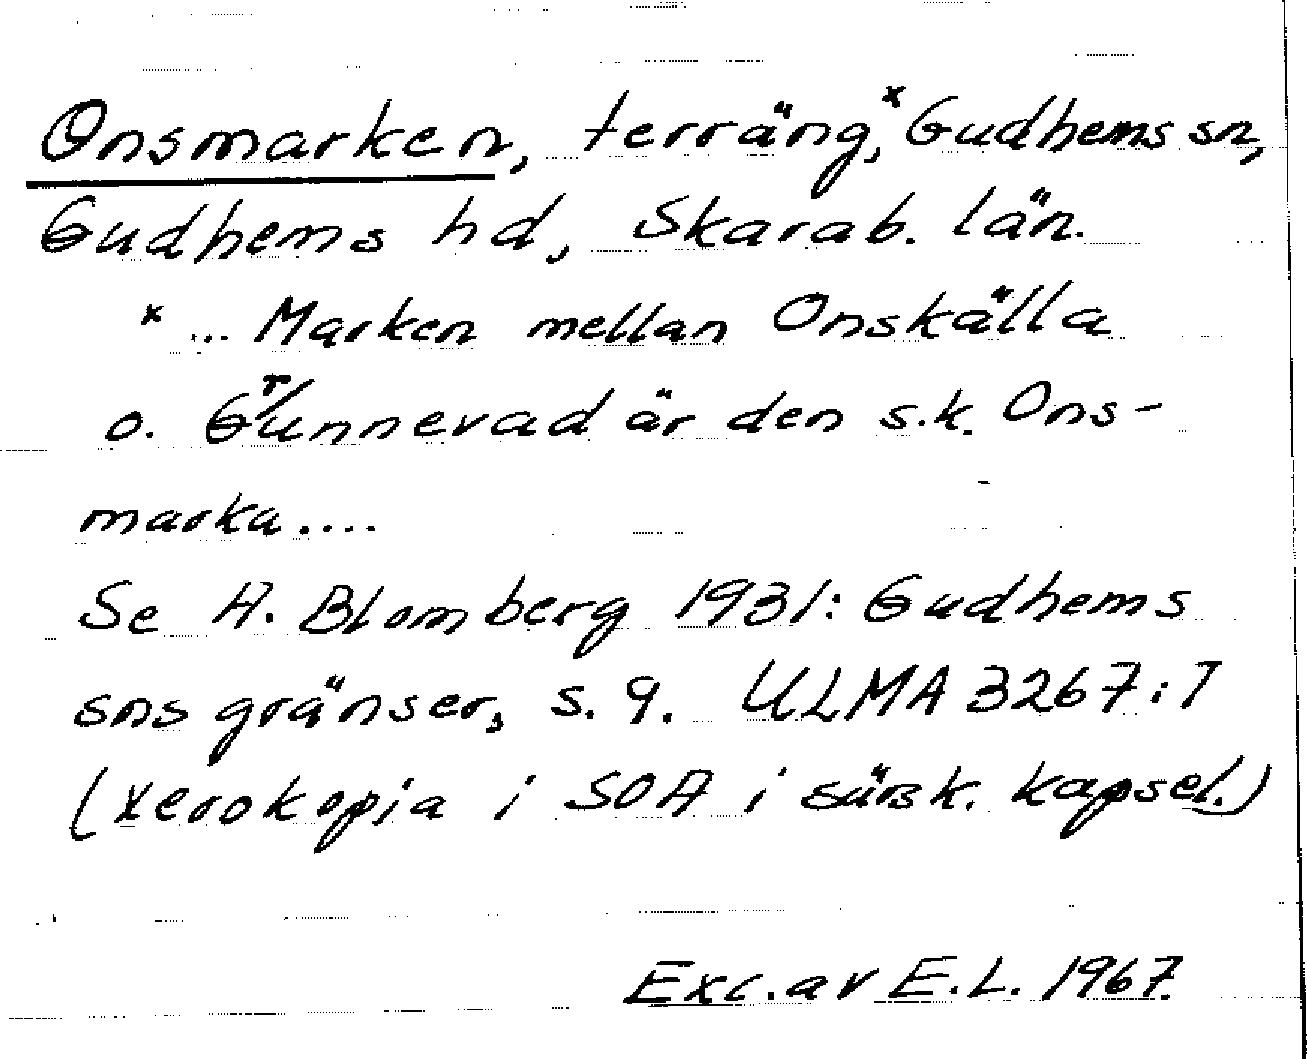 Onsmarken, terräng,ˣ Gudhems sn,
Gudhems hd, Skarab. län.
ˣ ... Marken mellan Onskälla
o. Grunnevad är den s.k. Ons-
marka....
Se A. Blomberg 1931: Gudhems
sns gränser, s. 9. ULMA 3267:7
(Xerokopia i SOA i särsk. kapsel.)
Exc. av E.L. 1967.